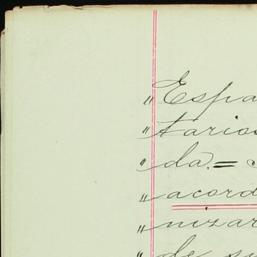 " Espa
" tarios
" da. =
" acord
" nizar
" de su